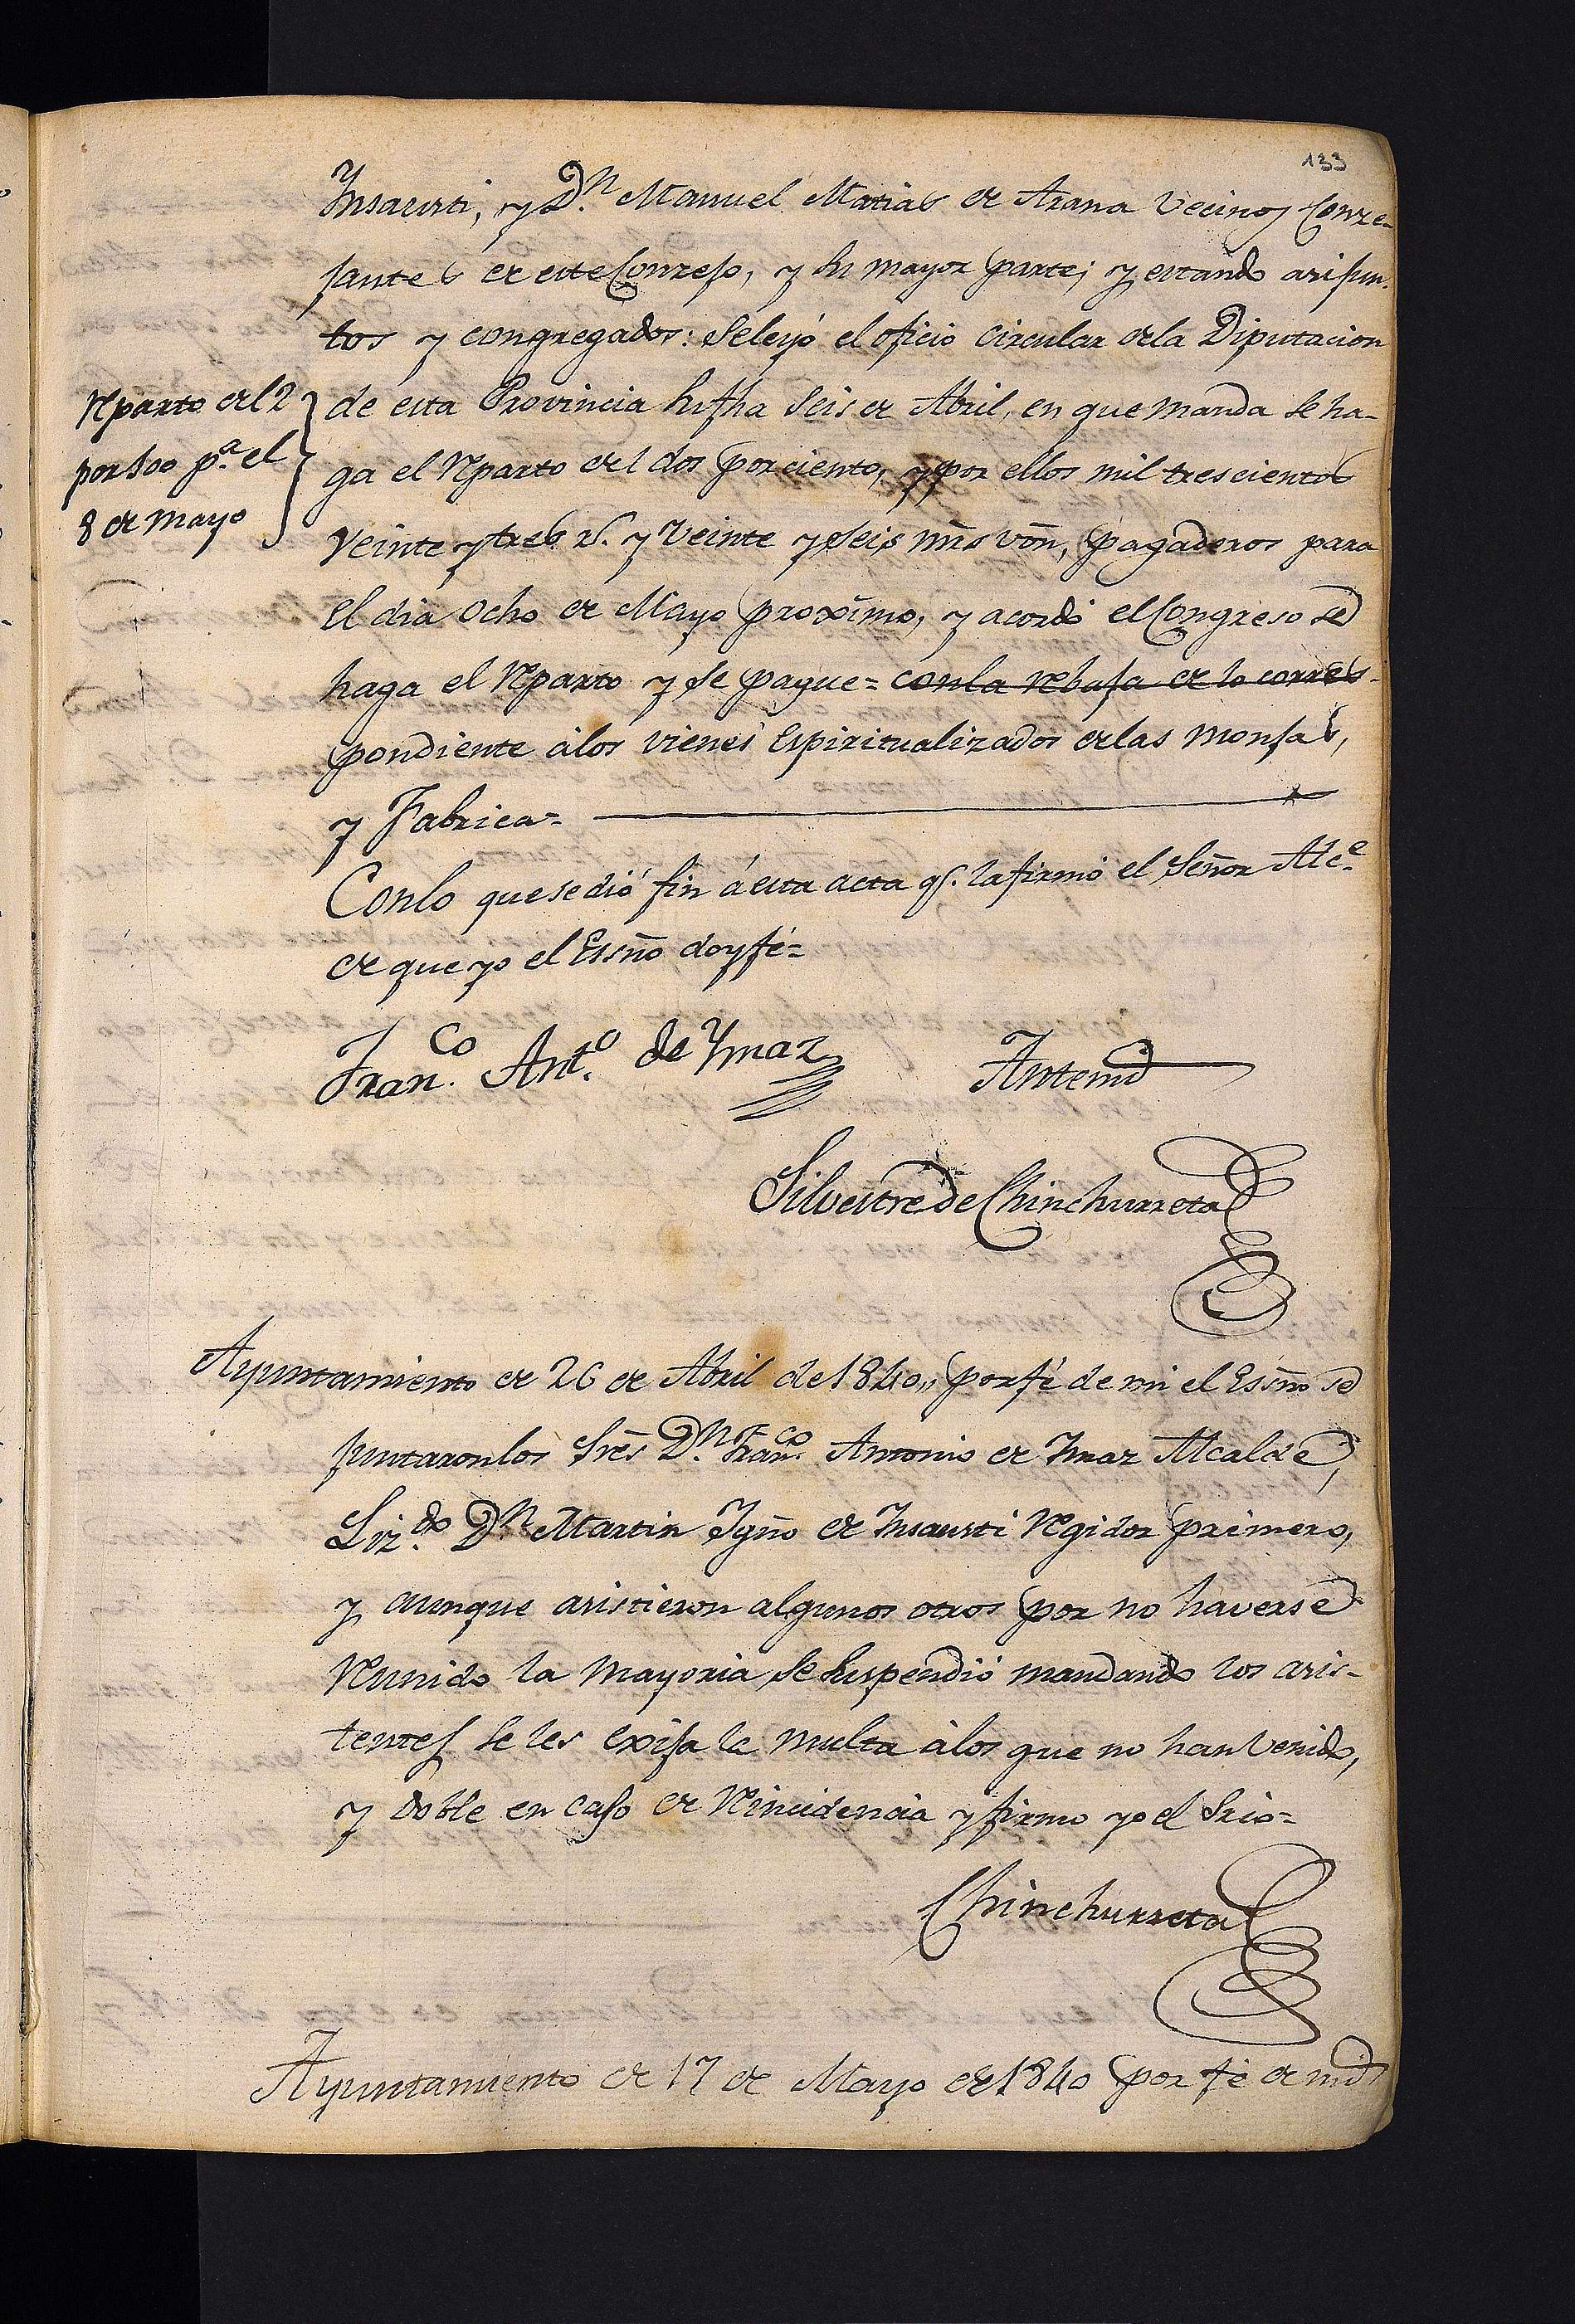 133
Insausti, y D.n Manuel Matias de Arana Vecinos Conze-
jantes de este Conzejo, y su mayor parte; y estando asi jun-
tos y congregados: Se leyó el oficio circular de la Diputacion
de esta Provincia su fha Seis de Abril, en que manda se ha-
ga el Reparto del dos por ciento, y por ellos mil trescientos
Veinte y tres r.s y Veinte y seis mrs von, pagaderos para
el dia Ocho de Mayo proximo, y acordó el Congreso se
haga el Reparto y se pague= con la rebaja de lo corres-
pondiente á los vienes Espiritualizados de las Monjas,
y Fabrica=
Reparto del 2
por 100 p.a el
8 de mayo
Con lo que se dió fin á esta acta q.e la firmó el Señor Alc.e
de que yo el Essño doy fé=
Fran.co Ant.o de Ymaz
Antemi
Silvestre de Chinchurreta
Ayuntamiento de 26 de Abril de 1840,, por fé de mi el Essño se
juntaron los Sres D.n Fran.co Antonio de Ymaz Alcalde,
Liz.do D.n Martin Ygño de Insausti Regidor primero,
y aunque asistieron algunos otros por no haverse
Reunido la Mayoria se Suspendió mandando los asis-
tentes se les exija la Multa á los que no han Venido,
y doble en caso de Reincidencia y firmo yo el Srio=
Chinchurreta
Ayuntamiento de 17 de Mayo de 1840 por fé de mi